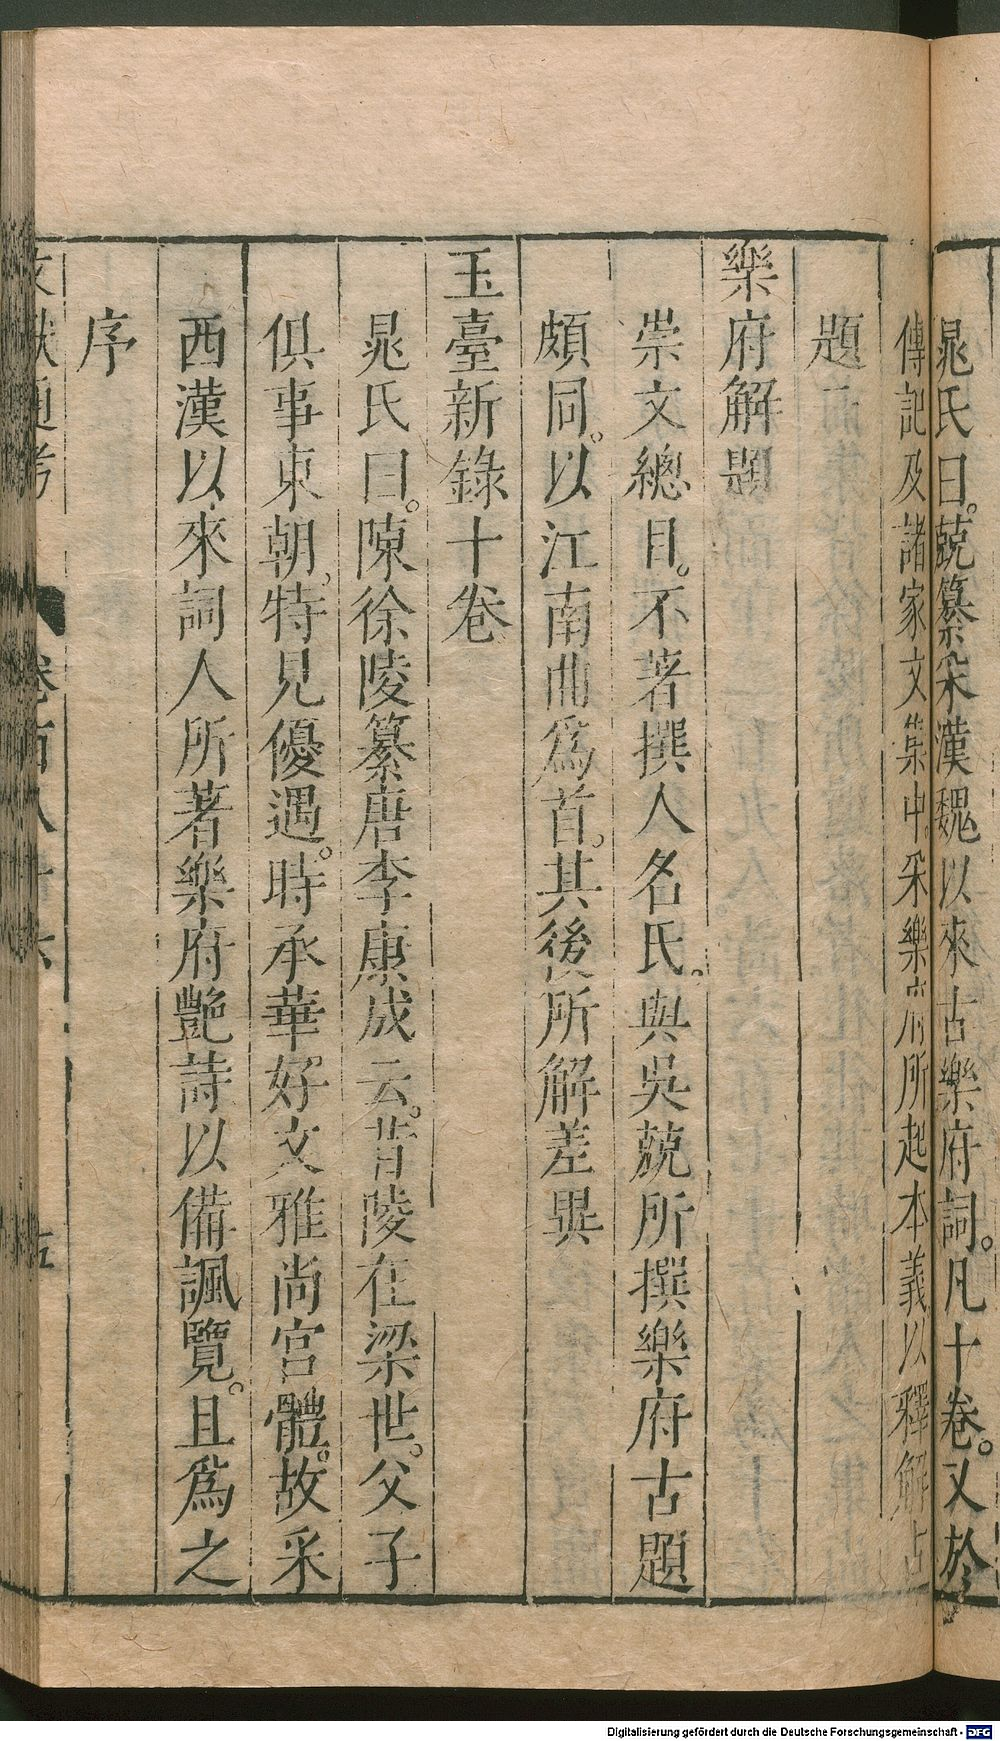 晁氏曰。兢纂采漢魏以來古樂府詞。凡十卷。又於
傳記及諸家文集中。采樂府所起本義以釋解古
題
樂府解題
崇文總目。不著撰人名氏。與吳兢所撰樂府古題
頗同。以江南曲爲首。其後所解差異
玉臺新錄十卷
晁氏曰。陳徐陵纂唐李康成云。昔陵在梁世。父子
俱事東朝。特見優遇。時承華好文雅尚宮體。故采
西漢以來詞人所著樂府艷詩以備諷覽。且爲之
序
文獻通考 卷百八十六 五
Digitalisierung gefördert durch die Deutsche Forschungsgemeinschaft - DFG